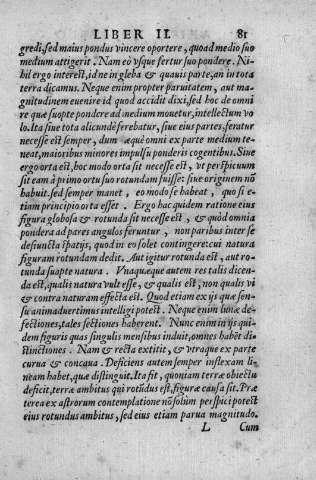 LIBER II. 81
gredi, sed maius pondus vincere oportere, quoad medio suo
medium attigerit. Nam eò vsque fertur suo pondere. Ni-
hil ergo interest, id ne in gleba & quauis parte, an in tota
terra dicamus. Neque enim propter paruitatem, aut ma-
gnitudinem euenire id quod accidit dixi, sed hoc de omni
re quæ suopte pondere ad medium monetur, intellectum vo
lo. Ita siue tota alicundè ferebatur, siue eius partes, feratur
necesse est semper, dum æquè omni ex parte medium te-
neat, maioribus minores impulsu ponderis cogentibus. Siue
ergo orta est, hoc modo orta sit necesse est, vt perspicuum
sit eam à primo ortu suo rotundam fuisse: siue originem nō
habuit, sed semper manet, eo modo se habeat, quo si e-
tiam principio orta esset. Ergo hac quidem ratione eius
figura globosa & rotunda sit necesse est, & quòd omnia
pondera ad pares angulos feruntur, non paribus inter se
defuncta spatijs, quod in eo solet contingere: cui natura
figuram rotundam dedit. Aut igitur rotunda est, aut ro-
tunda suapte natura. Vnaquæque autem res talis dicen-
da est, qualis natura vult esse, & qualis est, non qualis vi
& contra naturam effecta est. Quod etiam ex ijs quæ sen-
su animaduertimus intelligi potest. Neque enim lunæ de-
fectiones, tales sectiones haberent. Nunc enim in ijs qui-
dem figuris quas singulis mensibus induit, omnes habēt di-
stinctiones. Nam & recta extitit, & vtraque ex parte
curua & concaua. Deficiens autem semper inflexam li-
neam habet, quæ distinguit. Ita fit, quoniam terræ obiectu
deficit, terræ ambitus qui rotūdus est, figuræ causa sit. Præ
terea ex astrorum contemplatione nō solum perspici potest
eius rotundus ambitus, sed eius etiam parua magnitudo.
L Cum